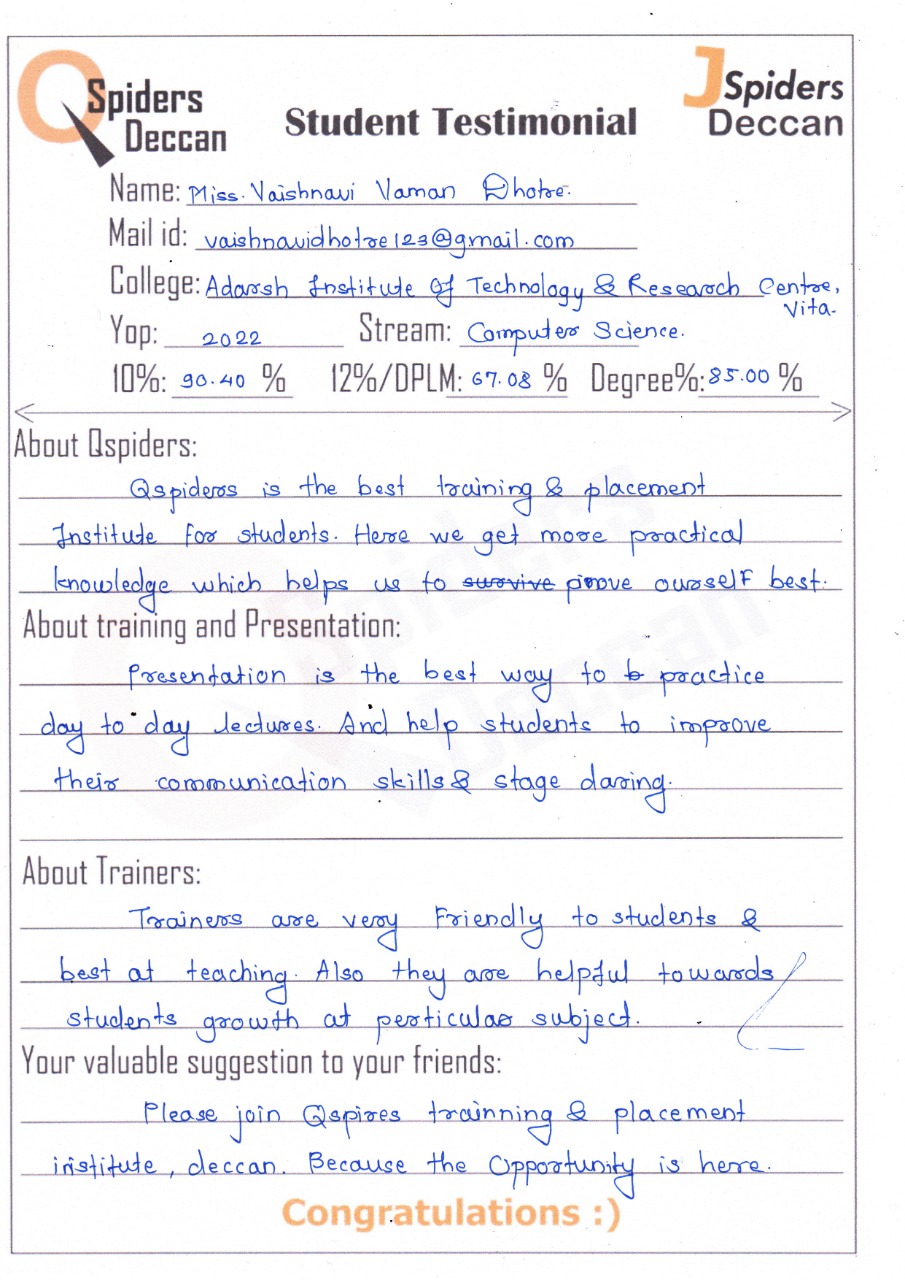 QSpiders
Deccan
Student Testimonial
JSpiders
Deccan
Name: Miss. Vaishnavi Vaman Dhotre.
Mail id: vaishnavidhotre123@gmail.com
College: Adarsh Institute Of Technology & Research Centre,
Vita.
Yop: 2022 Stream: Computer Science.
10%: 90.40 % 12%/DPLM: 67.08 % Degree%: 85.00 %
About Qspiders:
Qspiders is the best training & placement
Institute for students. Here we get more practical
knowledge which helps us to survive prove ourself best.
About training and Presentation:
Presentation is the best way to b practice
day to day lectures. And help students to improve
their communication skills & stage daring.
About Trainers:
Trainers are very Friendly to students &
best at teaching. Also they are helpful towards
students growth at perticular subject.
Your valuable suggestion to your friends:
Please join Qspires trainning & placement
institute, deccan. Because the Opportunity is here.
Congratulations :)
Qspiders
Deccan